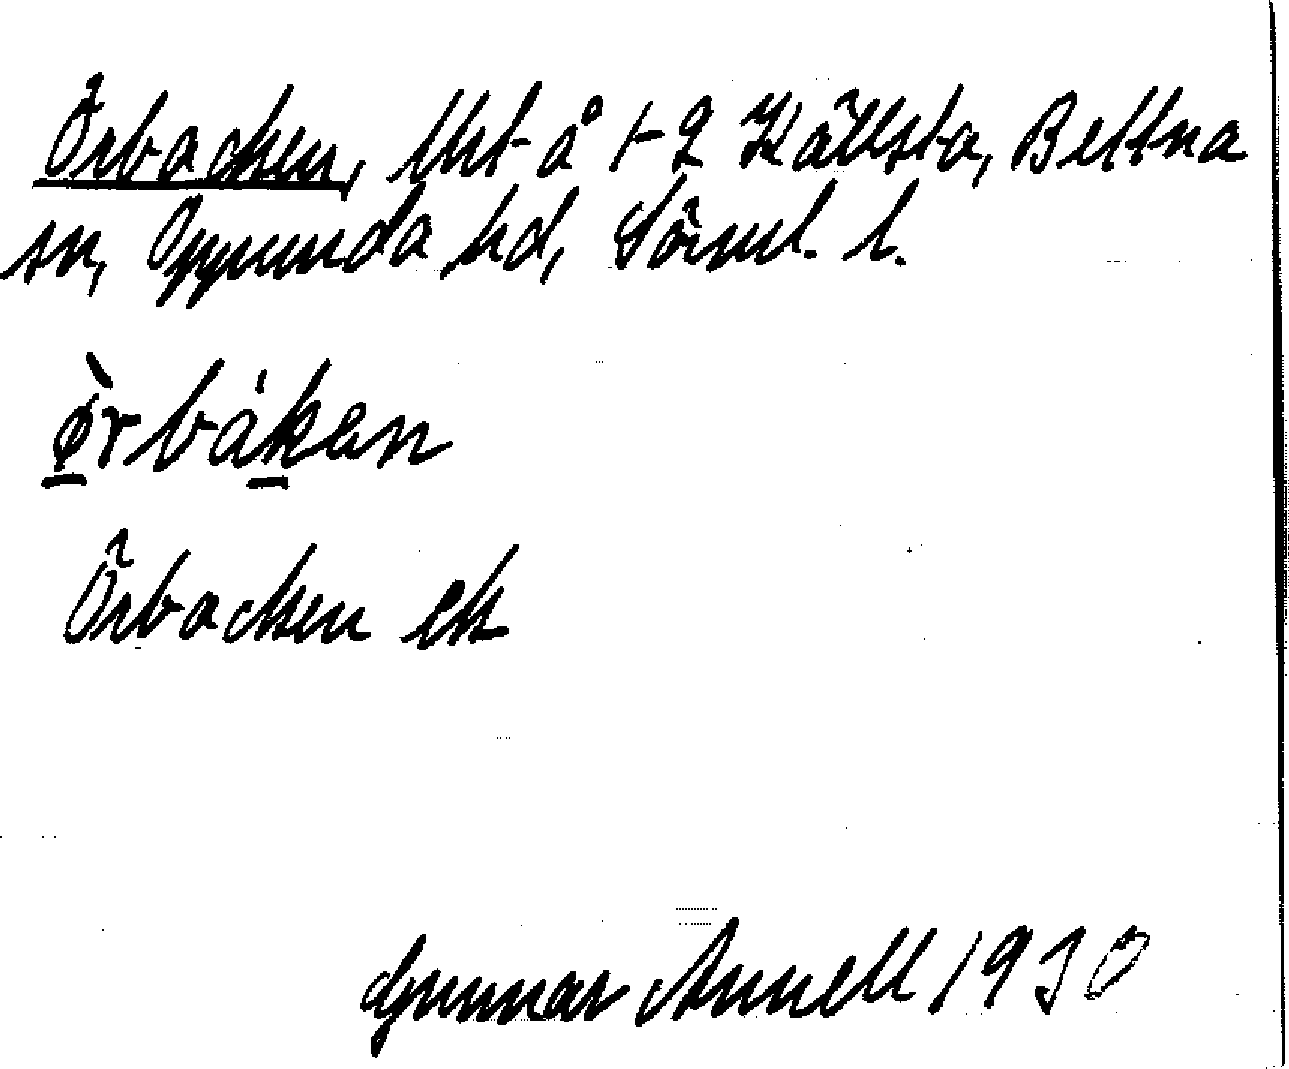 Örbacken, Utst å 1-2 Källsta, Bettna
sn, Oppunda hd, Sörml. l.
ø̀rbákan
Örbacken ek
Gunnar Annell 1930